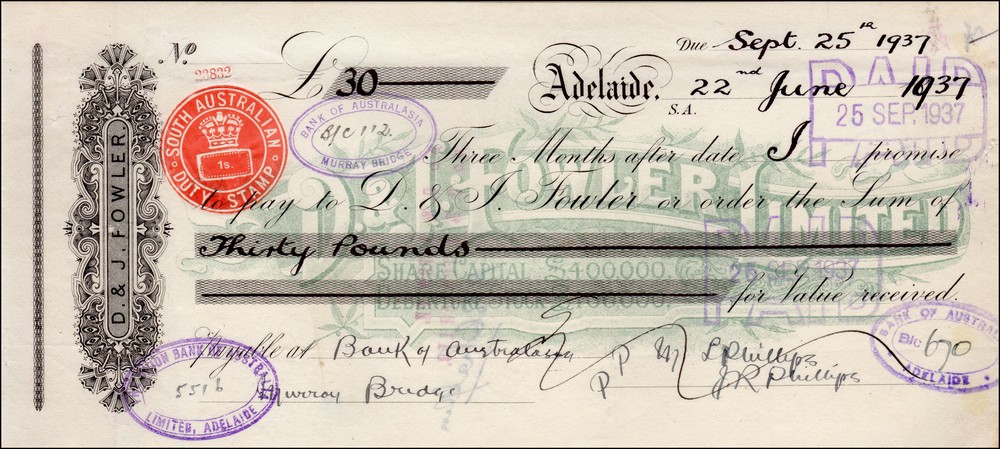 Due Sept. 25th 1937
No
20832
£30
Adelaide, 22nd June 1937
S.A.
PAID
25 SEP. 1937
SOUTH AUSTRALIAN
1s.
DUTY STAMP
BANK OF AUSTRALASIA
B/C 112
MURRAY BRIDGE
D. & J. FOWLER
D. & J. FOWLER LIMITED
Three Months after date I promise
to pay to D. & J. Fowler or order the Sum of
Thirty Pounds
PAID
25 SEP 1937
SHARE CAPITAL £400,000.
DEBENTURE STOCK
for Value received.
Payable at Bank of Australasia
Murray Bridge
PP M L Phillips
J R Phillips
BANK OF
B/C 670
ADELAIDE
5516
LIMITED, ADELAIDE